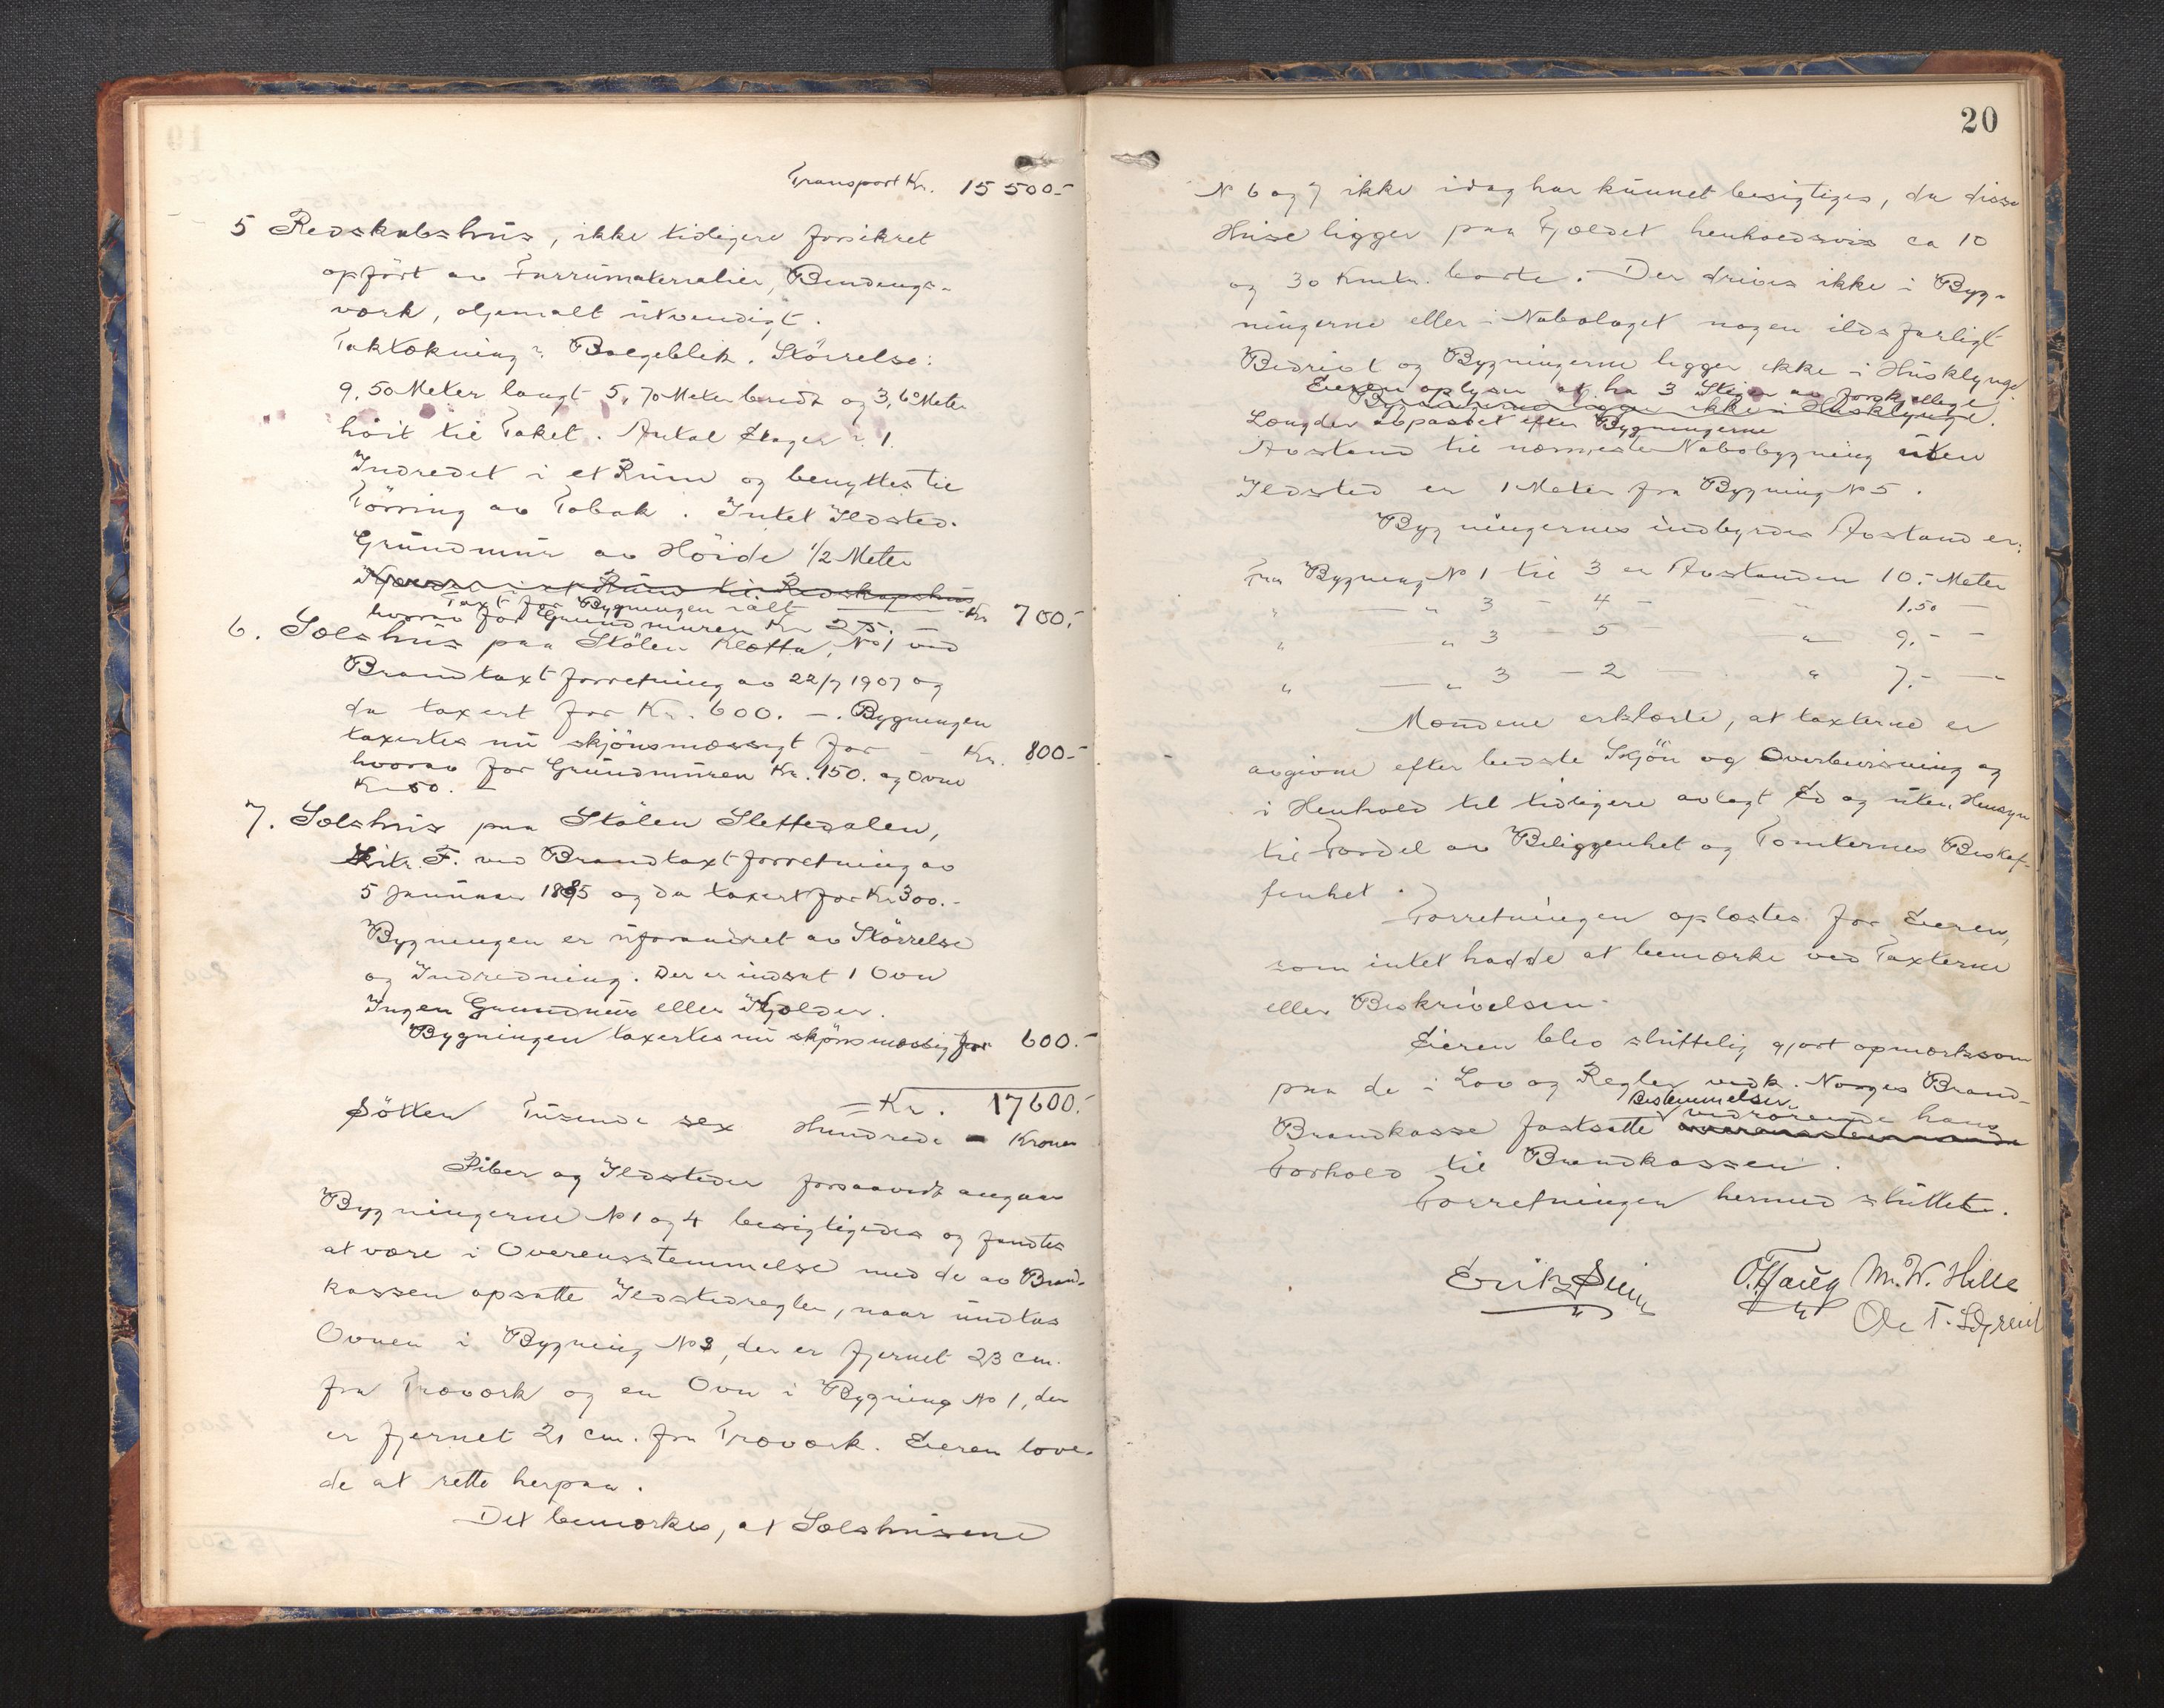 Transport Kr. 15 500.-
5 Redskabshus, ikke tidligere forsikret
opført av Furrumaterialier, Bindings-
værk, oljemalt utvendigt.
Taktækning: Bølgeblik. Størrelse:
9,50 Meter langt 5,70 Meter bredt og 3,60 Meter
høit til Taket. Antal Etager: 1.
Indredet i et Rum og benyttes til
Tørring av Tobak. Intet Ildsted.
Grundmur av Høide 1/2 Meter
Kjelder i et Rum til Redskapshus
Taxt for Bygningen ialt — Kr 700.-
hvorav for Grundmuren Kr 25.-
6. Sælshus paa Stølen Kløtta, No 1 ved
Brandtaxtforretning av 22/7 1907 og
da taxert for Kr. 600. —. Bygningen
taxertes nu skjønsmæssigt for - Kr. 800.-
hvorav for Grundmuren Kr. 150. og Ovne
Kr 50. -
7. Sælshus paa Stølen Slettedalen,
Litr. F. ved Brandtaxtforretning av
5 Januar 1885 og da taxert for Kr 300.-
Bygningen er uforandret av Størrelse
og Indredning. Der er indsat 1 Ovn
Ingen Grundmur eller Kjelder.
Bygningen taxertes nu skjønsmæssig for 600.-
= Kr. 17600.-
Søtten Tusinde sex Hundrede - Kroner
Piber og Ildsteder forsaavidt angaar
Bygningerne No 1 og 4 besigtigedes og fandtes
at være i Overensstemmelse med de av Brand-
kassen opsatte Ildstedregler, naar undtas
Ovnen i Bygning No 3, der er fjernet 23 cm.
fra Træværk og en Ovn i Bygning No 1, der
er fjernet 21 cm. fra Træværk. Eieren love-
de at rette herpaa.
Det bemærkes, at Sælshusene
20
No 6 og 7 ikke idag har kunnet besigtiges, da disse
Huse ligger paa Fjeldet henholdsvis ca 10
og 30 Kmtr. borte. Der drives ikke i Byg-
ningerne eller i Nabolaget nogen ildsfarligt
Bedrivt og Bygningerne ligger ikke i Husklynge.
Eieren oplyser at ha 3 Stiger av forskjellige
Bygningerne ligger ikke i Husklynge.
Længder avpasset efter Bygningerne
Avstand til nærmeste Nabobygning uten
Ildsted er 1 Meter fra Bygning No 5.
Bygningernes indbyrdes Avstand er:
Fra Bygning No 1 til 3 er Avstanden 10.- Meter
" — " 3 - 4 - — " 1.50 —
" — " 3 - 5 - — " 9.- -
" — " 3 - 2 — " 7.- —
Mændene erklærte, at taxterne er
avgivne efter bedste Skjøn og Overbevisning og
i Henhold til tidligere avlagt Ed og uten Hensyn
til Fordel av Beliggenhet og Tomternes Beskaf-
fenhet.
Forretningen oplæstes for Eieren,
som intet hadde at bemærke ved Taxterne
eller Beskrivelsen.
Eieren blev sluttelig gjort opmærksom
paa de i Lov og Regler vedk. Norges Brand-
Bestemmelser vedrørende hans
Brandkasse fastsatte overensstemmende
Forhold til Brandkassen.
Forretningen hermed sluttet.
Erik Seim O. Haug Mr. W. Hille
Ole T.